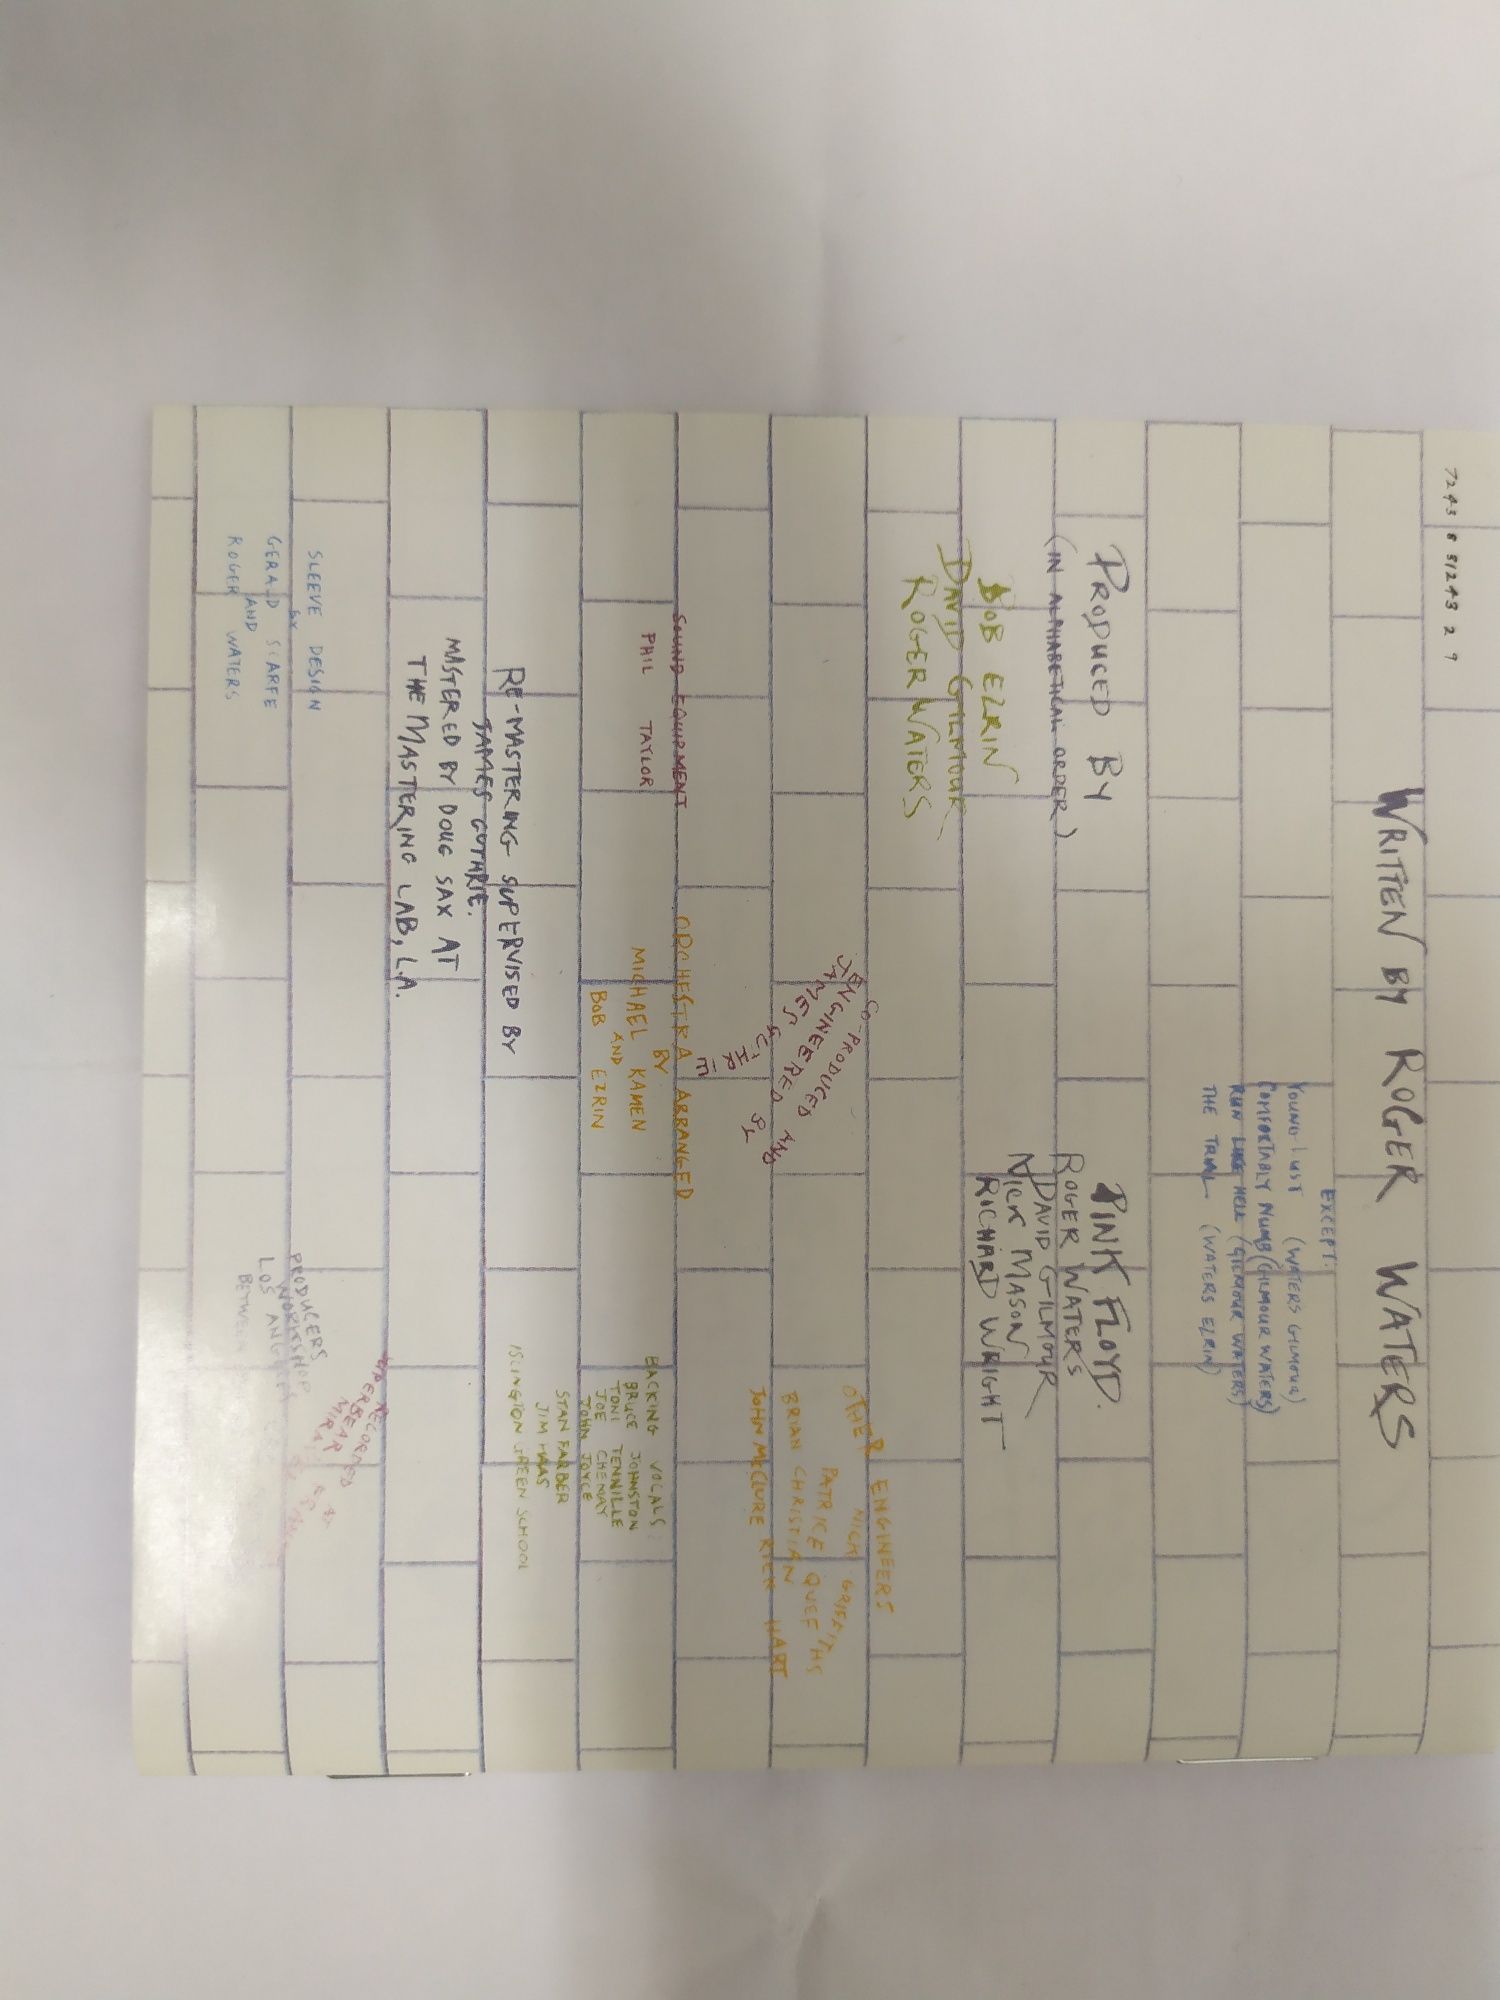 7243 8 31243 2 9
WRITTEN BY ROGER WATERS
EXCEPT:
YOUNG LUST (WATERS GILMOUR)
COMFORTABLY NUMB (GILMOUR WATERS)
RUN LIKE HELL (GILMOUR WATERS)
THE TRIAL (WATERS EZRIN)
PRODUCED BY
(IN ALPHABETICAL ORDER)
BOB EZRIN
DAVID GILMOUR
ROGER WATERS
PINK FLOYD.
ROGER WATERS
DAVID GILMOUR
NICK MASON
RICHARD WRIGHT
CO-PRODUCED AND
ENGINEERED BY
JAMES GUTHRIE
OTHER ENGINEERS
NICK GRIFFITHS
PATRICE QUEF
BRIAN CHRISTIAN
JOHN McCLURE RICK HART
SOUND EQUIPMENT
PHIL TAYLOR
ORCHESTRA ARRANGED
BY
MICHAEL KAMEN
AND
BOB EZRIN
BACKING VOCALS:
BRUCE JOHNSTON
TONI TENNILLE
JOE CHEMAY
JOHN JOYCE
STAN FARBER
JIM HAAS
ISLINGTON GREEN SCHOOL
RE-MASTERING SUPERVISED BY
JAMES GUTHRIE.
MASTERED BY DOUG SAX AT
THE MASTERING LAB, L.A.
SLEEVE DESIGN
BY
GERALD SCARFE
AND
ROGER WATERS
RECORDED
SUPERBEAR
PRODUCERS
WORKSHOP
LOS ANGELES
BETWEEN